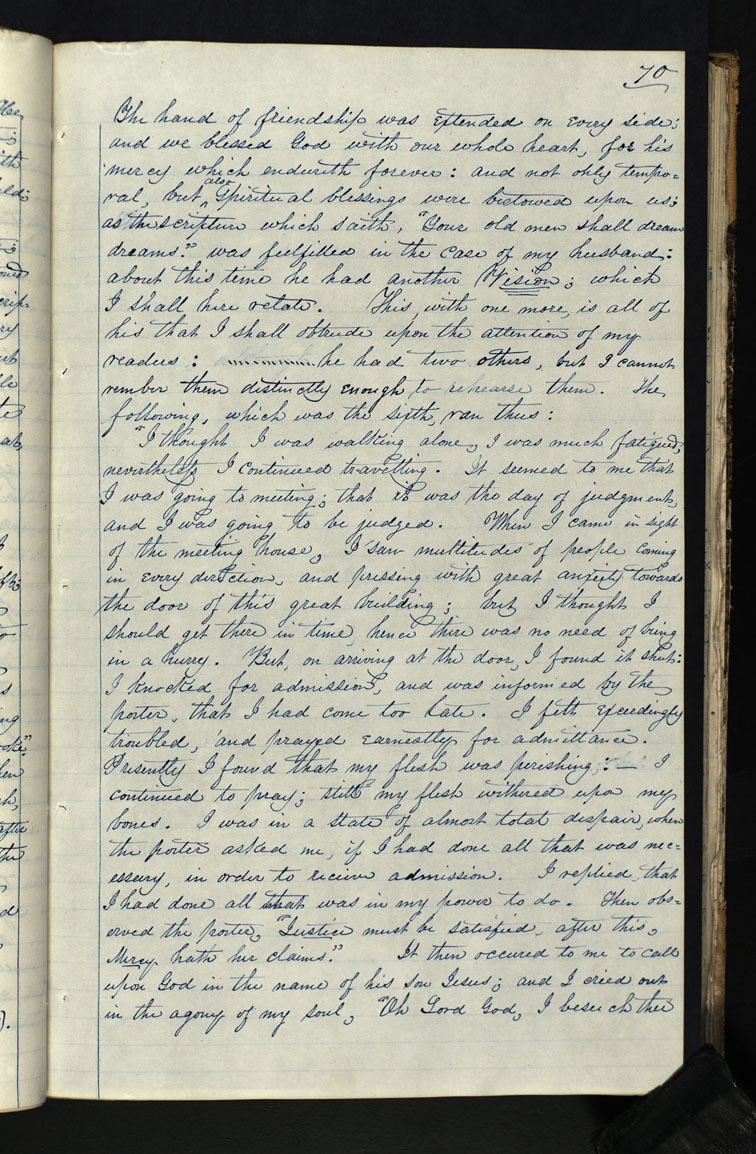 70
The hand of friendship was extended on every side;
and we blessed God with our whole heart, for his
mercy which endureth forever: and not only tempo=
ral, but also spiritual blessings were bestowed upon us;
as the scripture which saith, "Your old men shall dream
dreams." was fulfilled in the case of my husband:
about this time he had another Vision; which
I shall here relate. This, with one more, is all of
his that I shall obtrude upon the attention of my
readers: he had two others, but I cannot
rember them distinctly enough to rehearse them. The
following, which was the sixth, ran thus:
"I thought I was walking alone, I was much fatigued,
nevertheless I continued travelling. It seemed to me that
I was going to meeting; that it was the day of judgment,
and I was going to be judged. When I came in sight
of the meeting house, I saw multitudes of people coming
in every direction, and pressing with great anxiety towards
the door of this great building; but I thought I
should get there in time, hence there was no need of being
in a hurry. But, on arriving at the door, I found it shut:
I knocked for admission, and was informed by the
porter, that I had come too late. I felt exceedingly
troubled, and prayed earnestly for admittance.
Presently I found that my flesh was perishing: — I
continued to pray; still my flesh withered upon my
bones. I was in a state of almost total despair, when
the porter asked me, if I had done all that was nec=
essary, in order to receive admission. I replied, that
I had done all that was in my power to do. Then obs=
erved the porter, "Justice must be satisfied, after this,
Mercy hath her claims." It then occured to me to call
upon God in the name of his son Jesus; and I cried out
in the agony of my soul, "Oh Lord God, I beseech thee